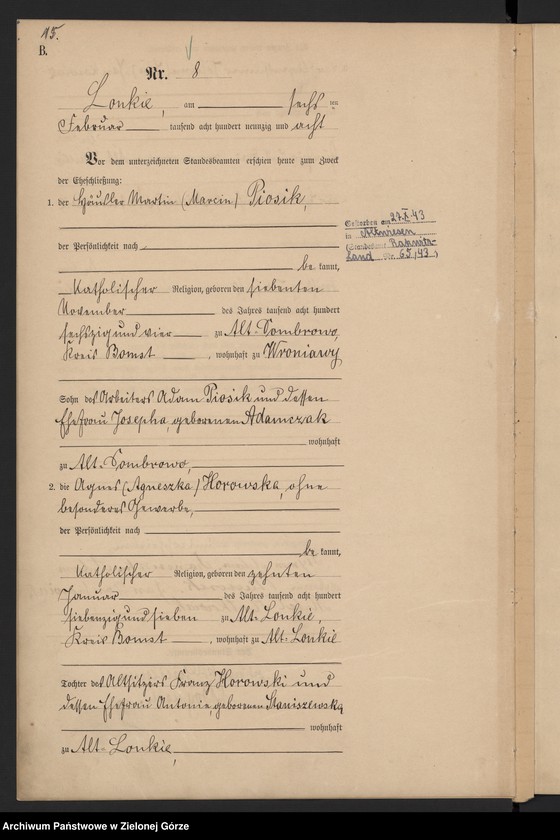 15.
B.
Nr. 8
Lonkie, am sechs ten
Februar tausend acht hundert neunzig und acht
Vor dem unterzeichneten Standesbeamten erschien heute zum Zweck
der Eheschließung:
1. der Häusler Martin (Marcin) Piosik,
Gestorben am 27.X.43
in Altwiesen
(Standesamt Rakwitz-
Land Nr. 65/43)
der Persönlichkeit nach
be kannt,
Katholischer Religion, geboren den siebenten
November des Jahres tausend acht hundert
sechszig und vier zu Alt-Dombrowo,
Kreis Bomst, wohnhaft zu Wroniawy
Sohn des Arbeiters Adam Piosik und dessen
Ehefrau Josepha, geborenen Adamczak
wohnhaft
zu Alt-Dombrowo,
2. die Agnes (Agneszka) Horowska, ohne
besonderes Gewerbe,
der Persönlichkeit nach
be kannt,
Katholischer Religion, geboren den zehnten
Januar des Jahres tausend acht hundert
siebenzig und sieben zu Alt-Lonkie,
Kreis Bomst, wohnhaft zu Alt-Lonkie
Tochter des Altsitzers Franz Horowski und
dessen Ehefrau Antonie, geborenen Staniszewska
wohnhaft
zu Alt-Lonkie,
Archiwum Państwowe w Zielonej Górze